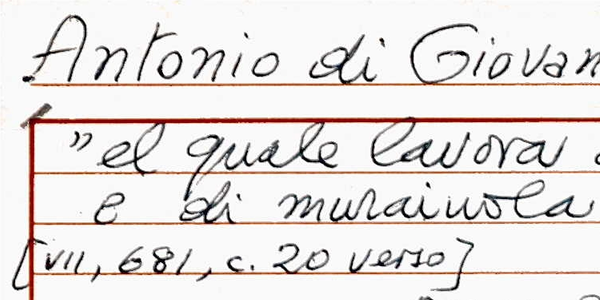 Antonio di Giovan
"el quale lavora
e di muraiuola
[VII, 681, c. 20 verso]